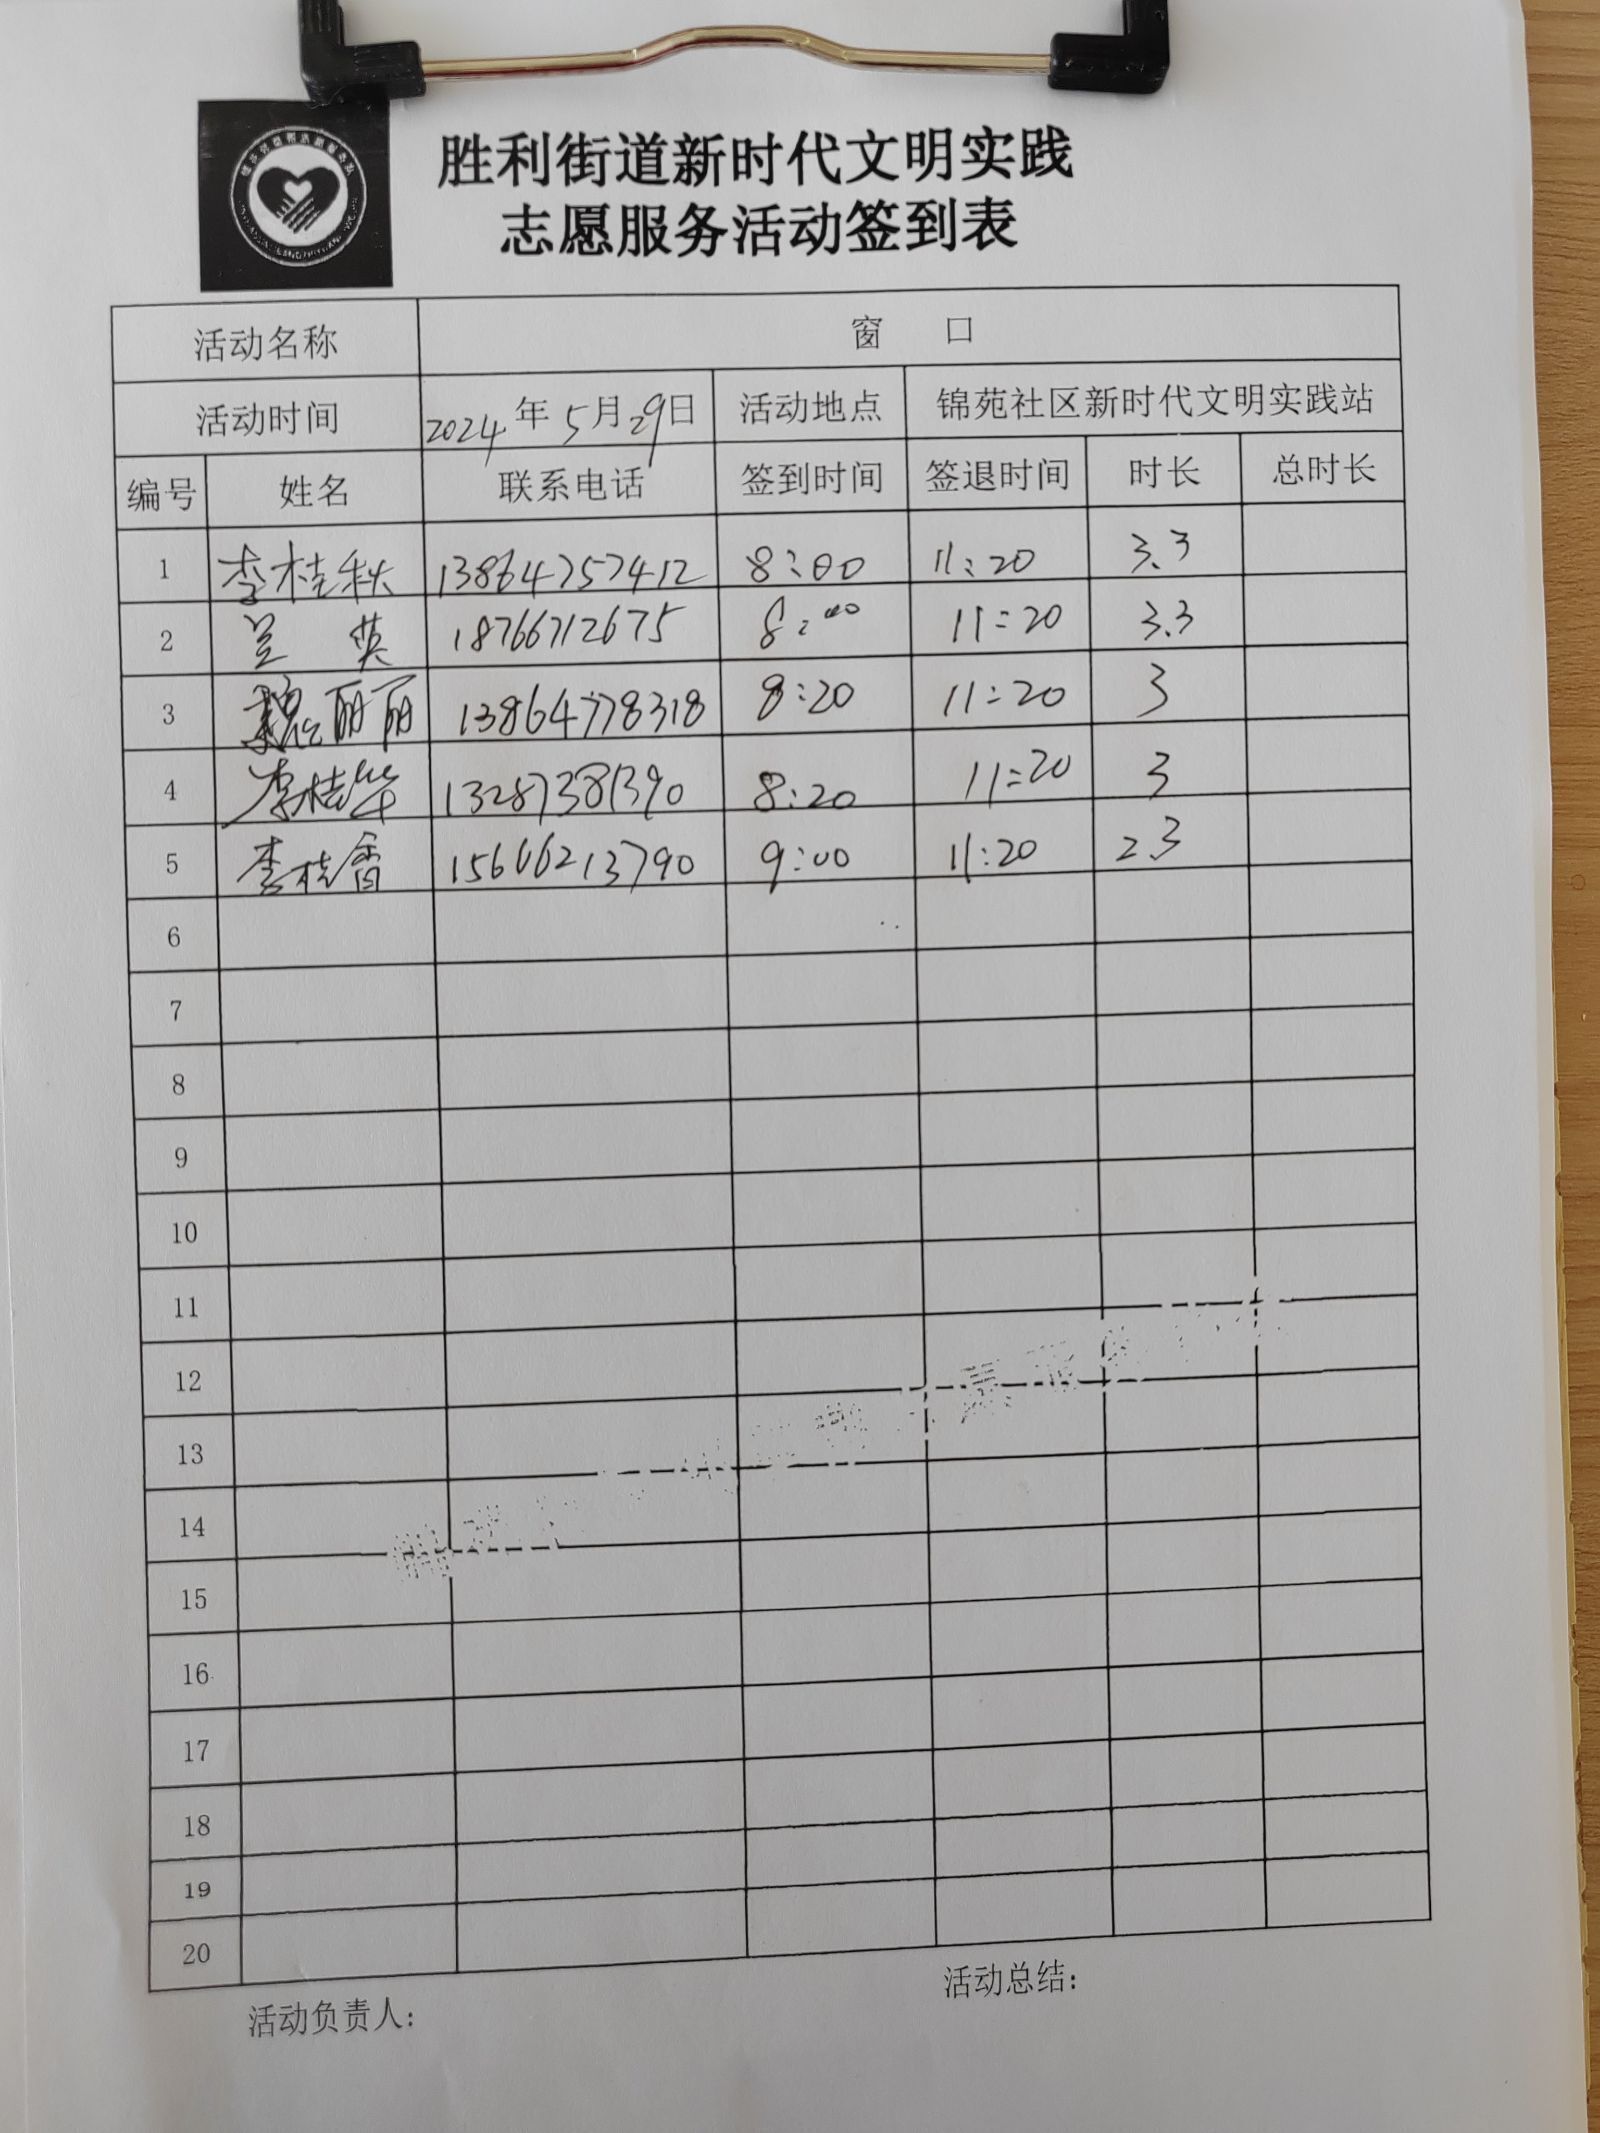 胜利街道新时代文明实践
志愿服务活动签到表
活动名称 窗 口
活动时间 2024年5月29日 活动地点 锦苑社区新时代文明实践站
编号 姓名 联系电话 签到时间 签退时间 时长 总时长
1 李桂秋 13864757412 8:00 11:20 3.3
2 兰 英 18766712675 8:00 11:20 3.3
3 魏丽丽 13864778318 8:20 11:20 3
4 李桂华 13287381390 8:20 11:20 3
5 李桂香 15666213790 9:00 11:20 2.3
6
7
8
9
10
11
12
13
14
15
16
17
18
19
20
活动负责人: 活动总结: